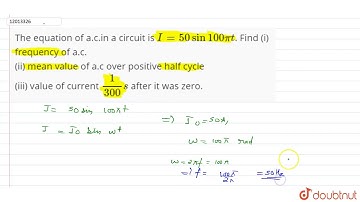 12013326
The equation of a.c.in a circuit is I = 50 sin 100πt. Find (i)
frequency of a.c.
(ii) mean value of a.c over positive half cycle
(iii) value of current 1/300 s after it was zero.
I = 50 sin 100πt
I = I₀ sin ωt
=) I₀ = 50A,
ω = 100π rad
ω = 2πf = 100π
=) f = 100π/2π = 50Hz
doubtnut